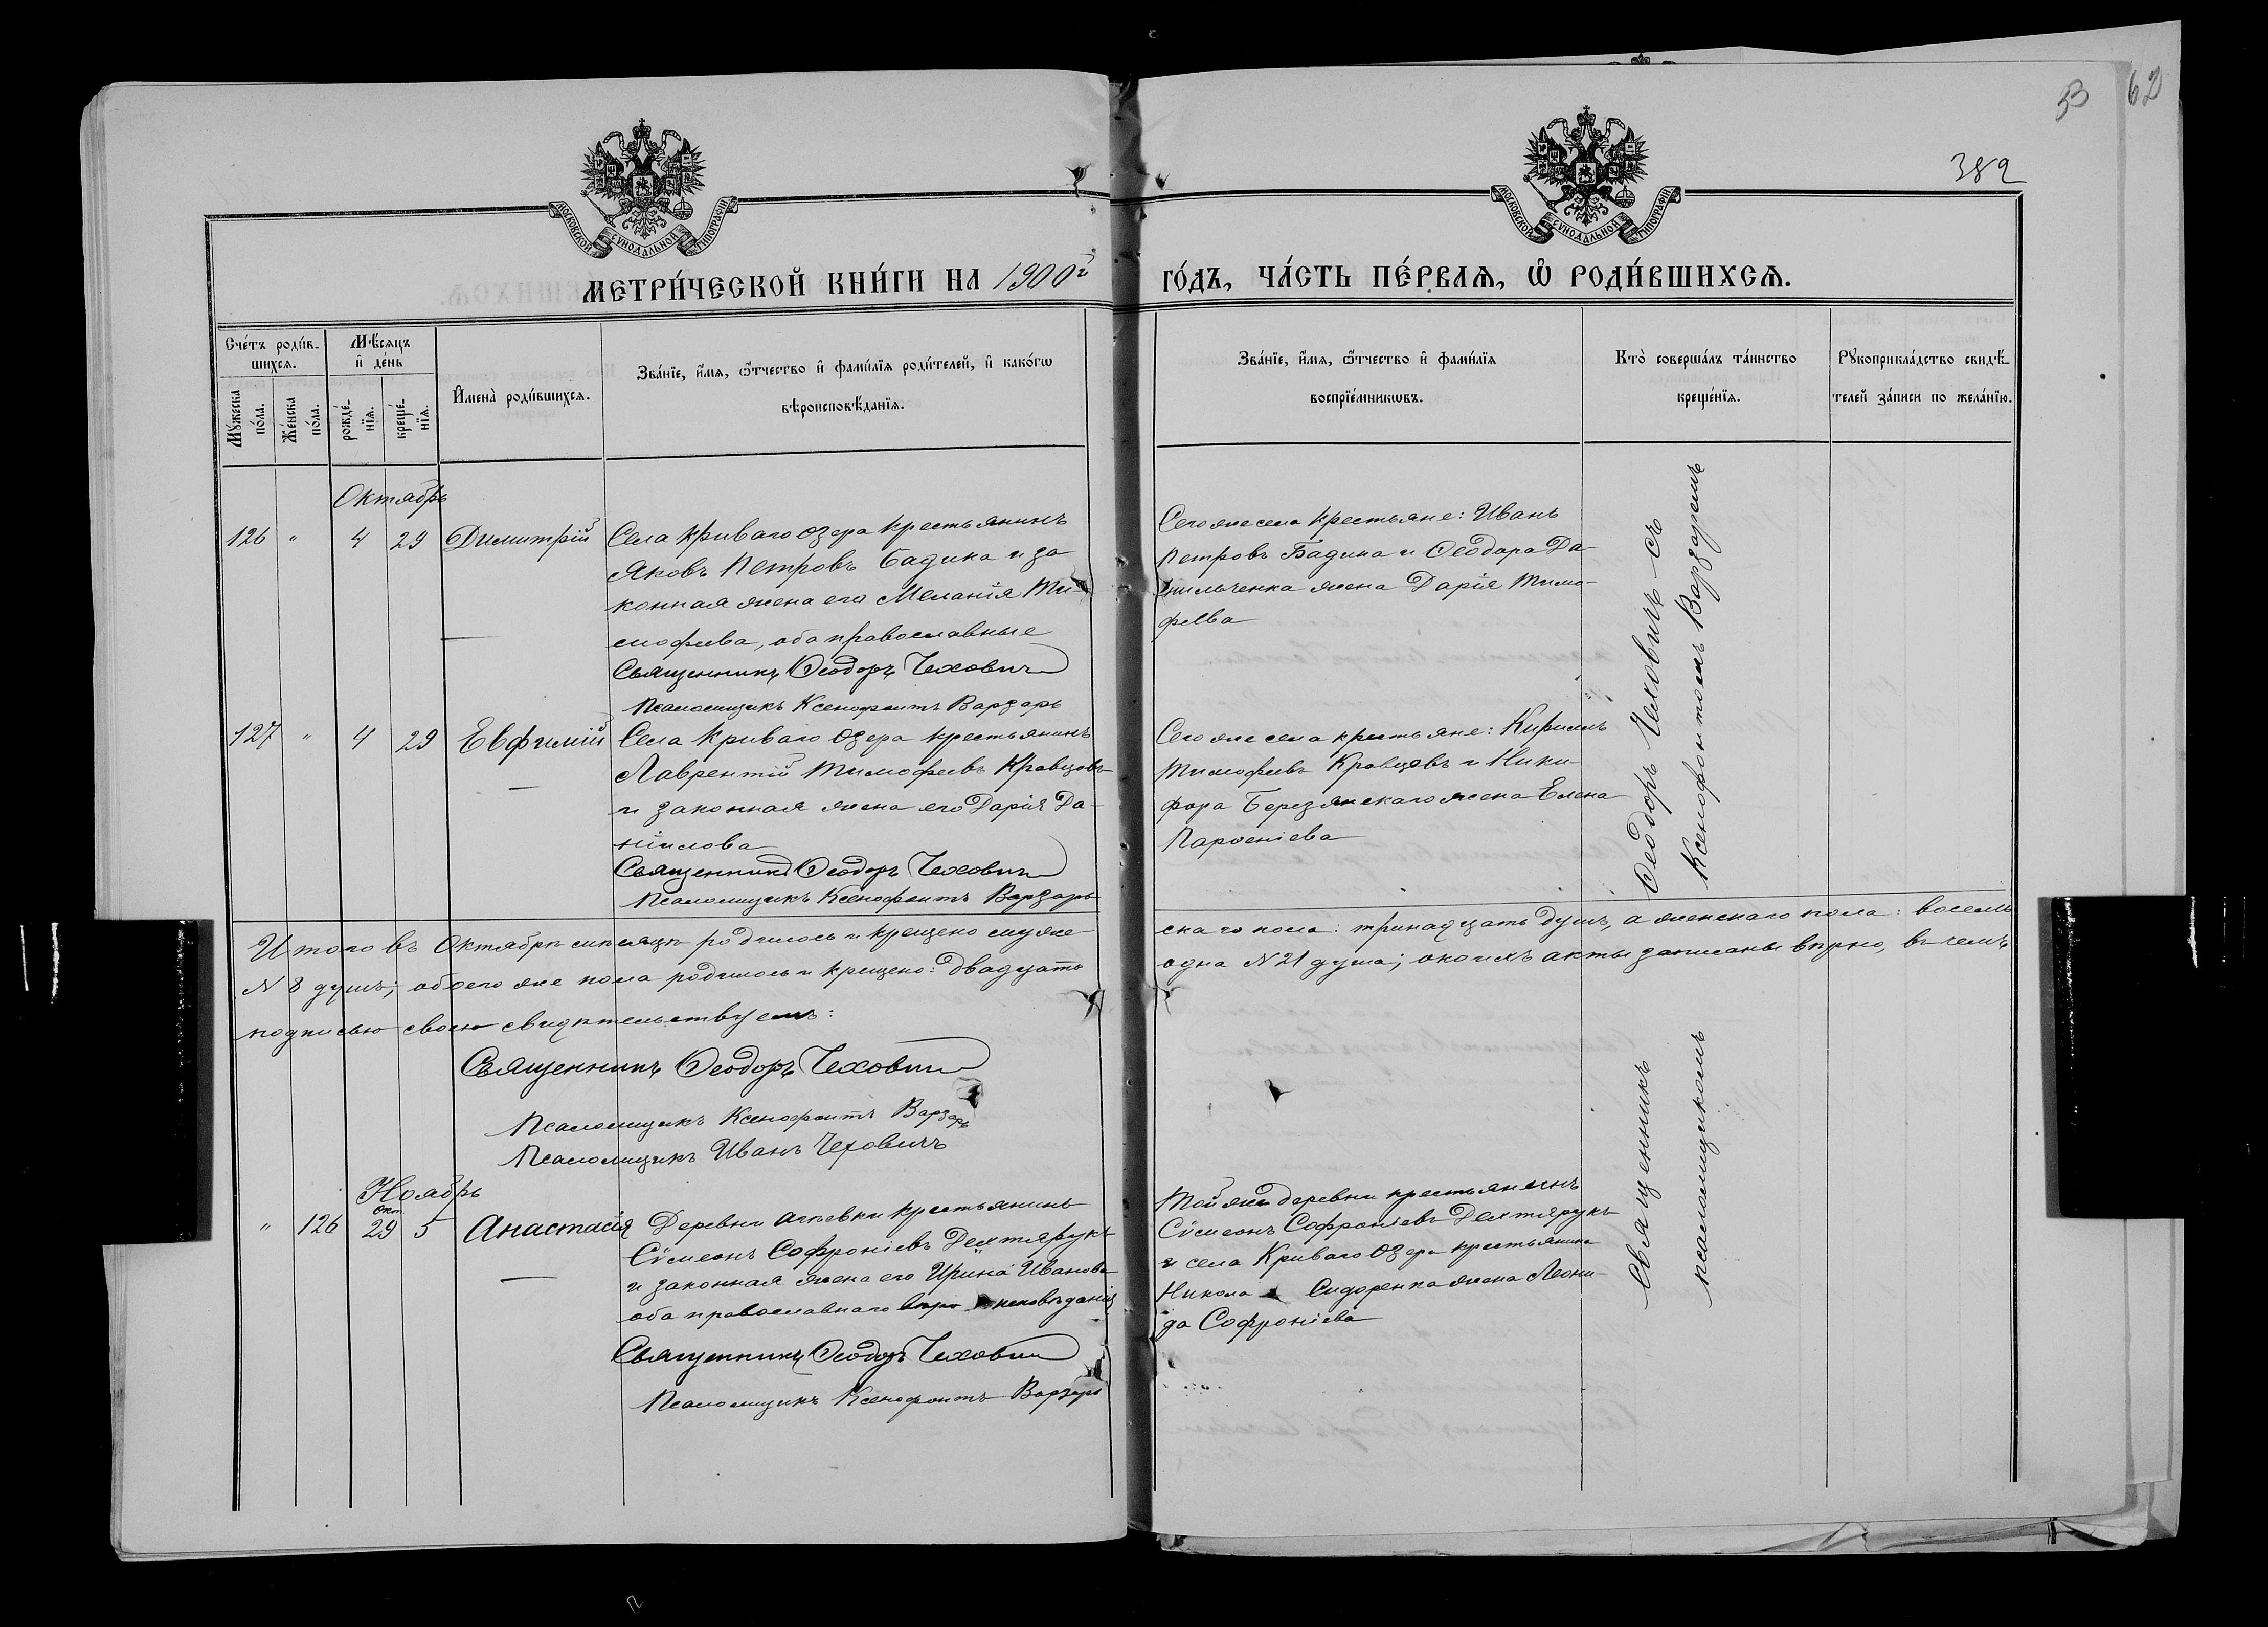 53
62
382
МОСКОВСКОЙ СѴНОДАЛЬНОЙ ТИПОГРАФІИ
МОСКОВСКОЙ СѴНОДАЛЬНОЙ ТИПОГРАФІИ
МЕТРИ́ЧЕСКОЙ КНИ́ГИ НА 1900 г ГО́ДЪ, ЧА́СТЬ ПЕ́РВАѦ, Ѡ҆ РОДИ́ВШИХСѦ.
Сче́тъ роди́в-
шихсѧ.
Мꙋ́жеска
по́ла.
Же́нска
по́ла.
Мѣ́сѧцъ
и҆ де́нь
рожде́-
нїѧ.
креще́-
нїѧ.
И҆мена̀ роди́вшихсѧ.
Зва́нїе, и҆́мѧ, ѻ҆́тчество и҆ фами́лїѧ роди́телей, и҆ како́гѡ
вѣроисповѣ́данїѧ.
Зва́нїе, и҆́мѧ, ѻ҆́тчество и҆ фами́лїѧ
воспрїе́мникѡвъ.
Кто̀ соверша́лъ та́инство
креще́нїѧ.
Рꙋкоприкла́дство свидѣ́-
телей за́писи по жела́нїю.
Октябрь
126 " 4 29 Димитрій
Села Криваго Озера крестьянинъ
Яковъ Петровъ Бадика и за
конная жена его Меланія Ти-
мофеева, оба православные
Священникъ Ѳеодоръ Чеховичъ
Псаломщикъ Ксенофонтъ Варзарь
Сего же села крестьяне: Иванъ
Петровъ Бадика и Ѳеодора Да-
нильченка жена Дарія Тимо-
феева
127 " 4 29 Евфимій
Села Криваго Озера крестьянинъ
Лаврентій Тимофеевъ Кравцовъ
и законная жена его Дарія Да-
ніилова
Священникъ Ѳеодоръ Чеховичъ
Псаломщикъ Ксенофонтъ Варзарь
Сего же села крестьяне: Кириллъ
Тимофеевъ Кравцовъ и Ники-
фора Березянскаго жена Елена
Парѳеніева
Итого въ Октябрѣ мѣсяцѣ родилось и крещено муже-
скаго пола: тринадцать душъ, а женскаго пола: восемь
N 8 душъ; обоего же пола родилось и крещено: двадцать
одна N 21 душа; о коихъ акты записаны вѣрно, въ чемъ
подписью своею свидѣтельствуемъ:
Священникъ Ѳеодоръ Чеховичъ
Псаломщикъ Ксенофонтъ Варзарь
Псаломщикъ Иванъ Чеховичъ
Ноябрь
" 126 Окт. 29 5 Анастасія
Деревни крестьянинъ
Сѵмеонъ Софроніевъ Дехтярукъ
и законная жена его Ирина Иванова
оба православнаго вѣроисповѣданія
Священникъ Ѳеодоръ Чеховичъ
Псаломщикъ Ксенофонтъ Варзарь
Той же деревни крестьянинъ
Сѵмеонъ Софроніевъ Дехтярукъ
и села Криваго Озера крестьянина
Никола Сидоренка жена Леони-
да Софроніева
Священникъ Ѳеодоръ Чеховичъ съ
псаломщикомъ Ксенофонтомъ Варзаремъ